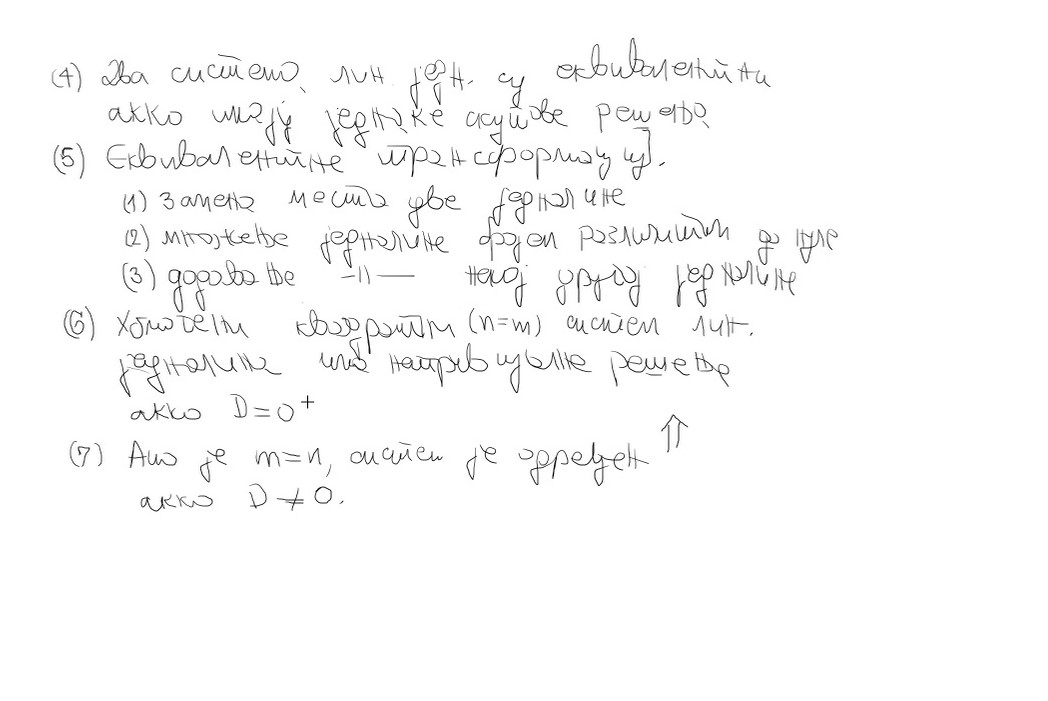 (4) Два система лин. једн. су еквивалентни
акко имају једнаке скупове решења
(5) Еквивалентне трансформације.
(1) Замена места две једначине
(2) множење једначине бројем различитим од нуле
(3) додавање -||- некој другој једначине
(6) Хомогени квадратни (n=m) систем лин.
једначина има нетривијалне решење
акко D=0
(7) Ако је m=n, систем је одређен ⇑
акко D≠0.